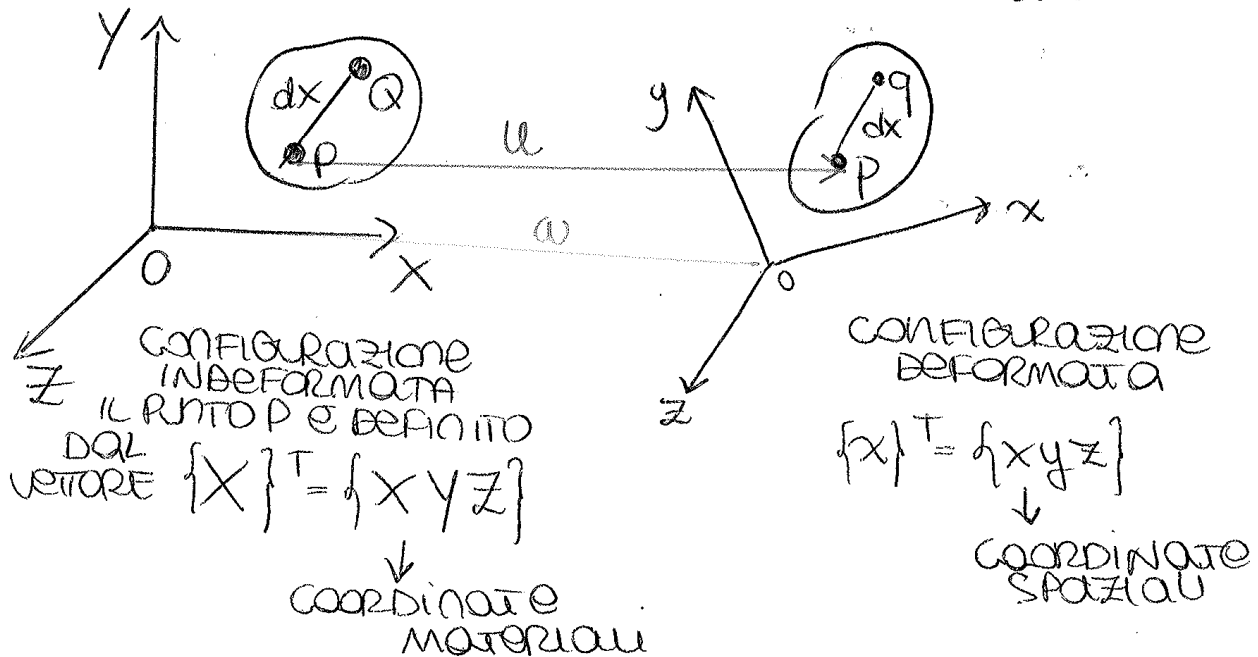 Y
dx
Q
P
u
y
q
dx
P
x
O
X
Z
o
z
CONFIGURAZIONE
INDEFORMATA
IL PUNTO P È DEFINITO
DAL
VETTORE {X}ᵀ = {X Y Z}
COORDINATE
MATERIALI
CONFIGURAZIONE
DEFORMATA
{x}ᵀ = {x y z}
COORDINATE
SPAZIALI